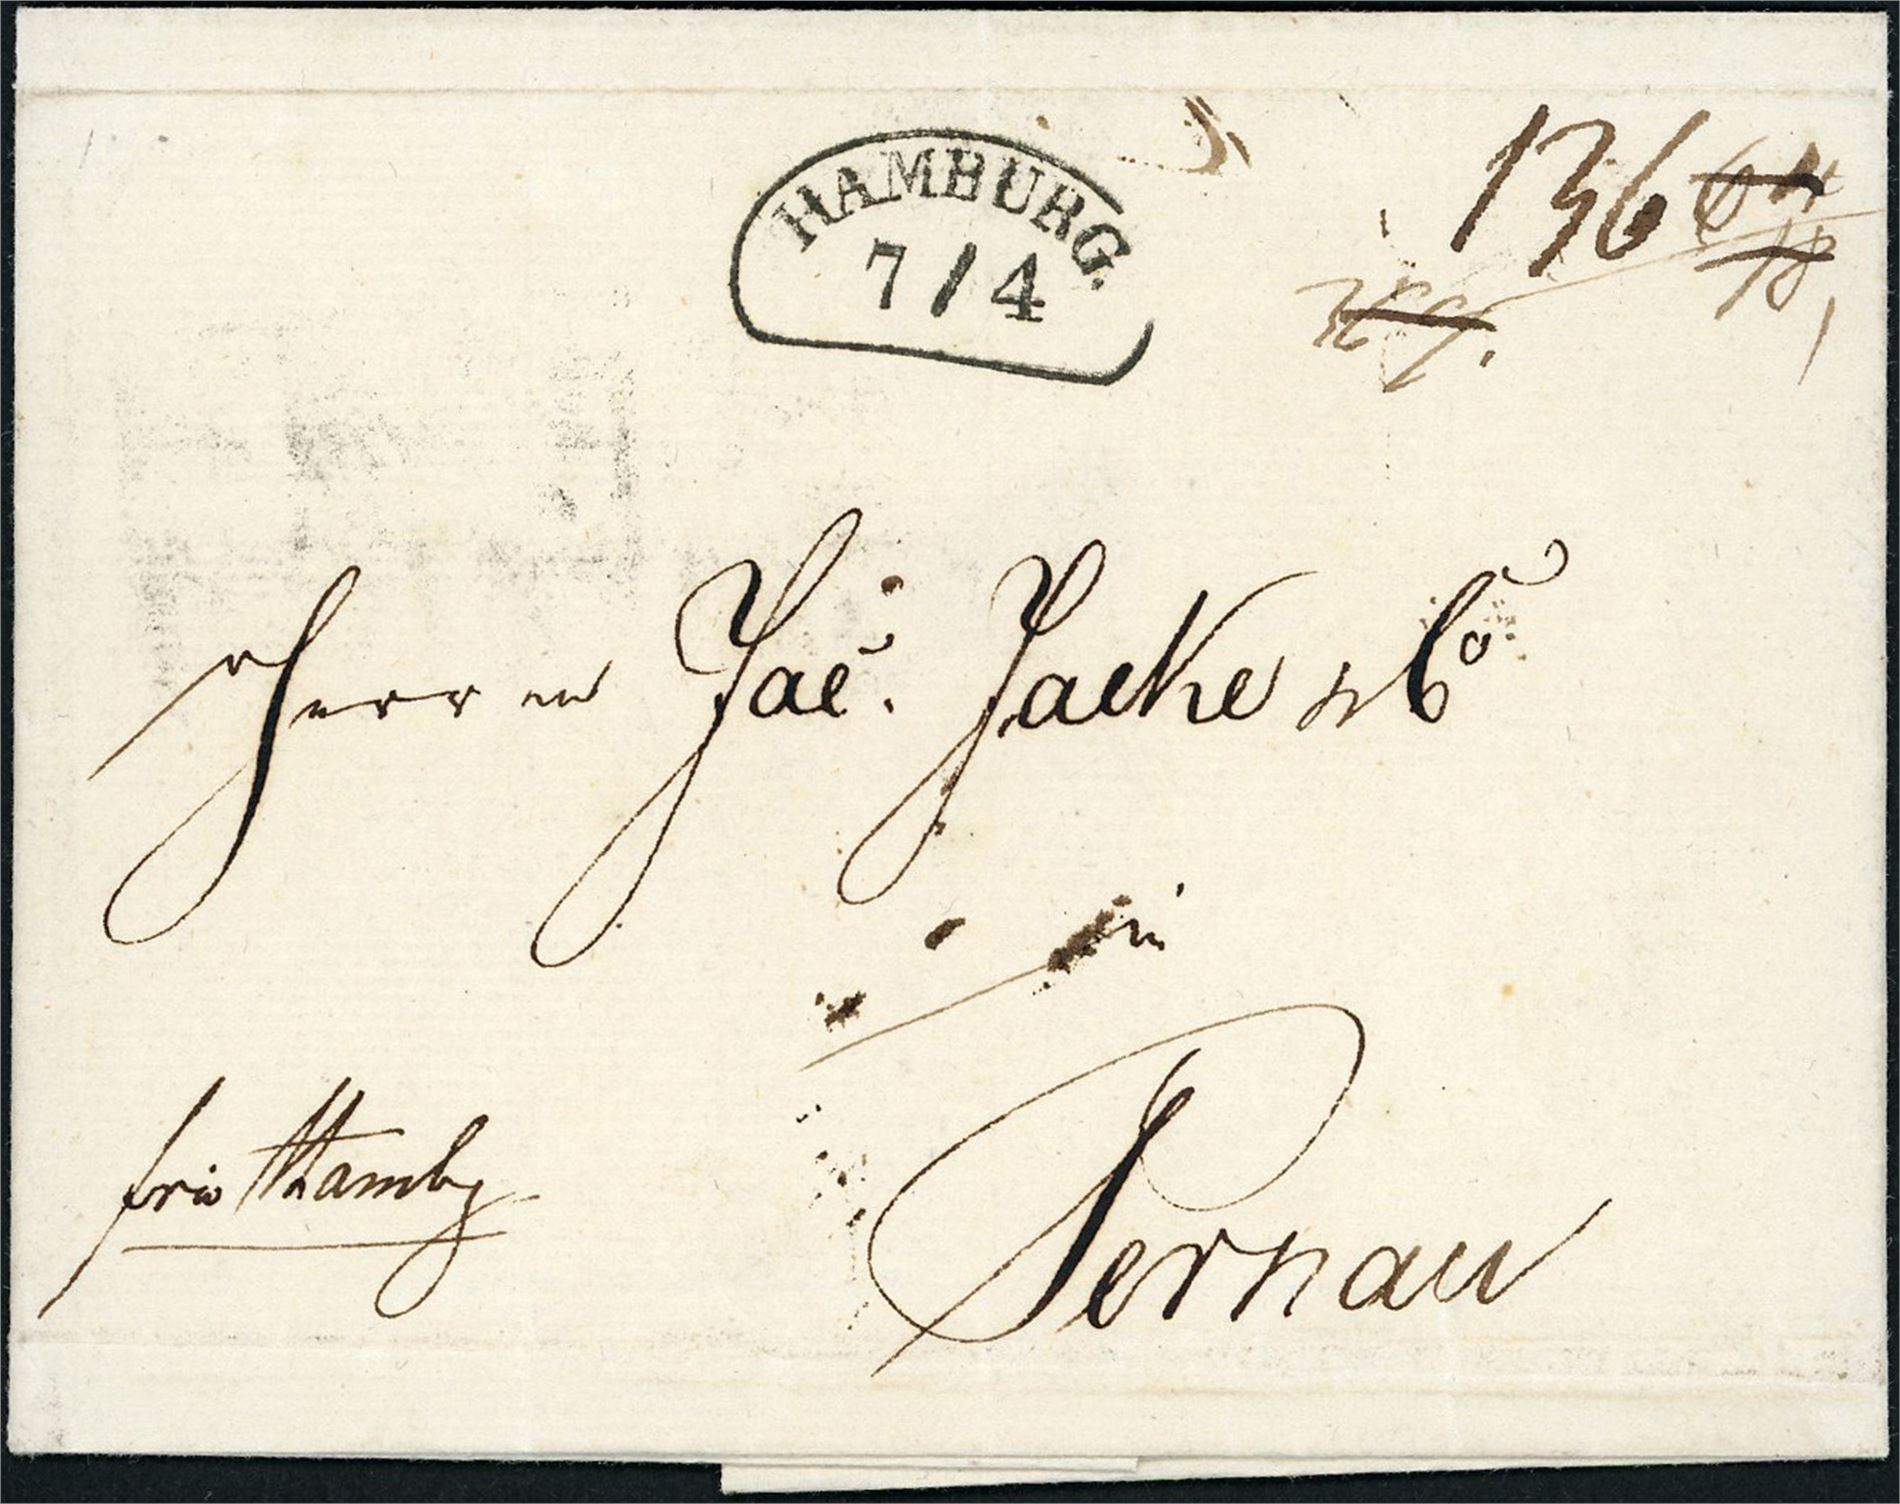 HAMBURG.
7/4
136
Herren Jac. Jacke & Co.
in
Pernau
frco Hambg